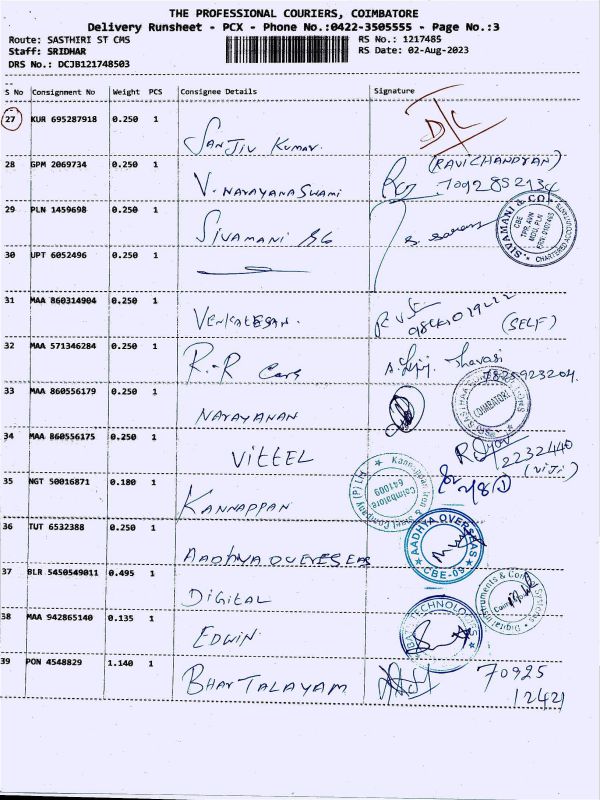 THE PROFESSIONAL COURIERS, COIMBATORE
Delivery Runsheet - PCX - Phone No.:0422-3505555 - Page No.:3
Route: SASTHIRI ST CMS
RS No.: 1217485
Staff: SRIDHAR
RS Date: 02-Aug-2023
DRS No.: DCJB121748503
S No Consignment No Weight PCS Consignee Details Signature
27 KUR 695287918 0.250 1 SANJIV KUMAR. D/C
28 GPM 2069734 0.250 1 V. NARAYANASWAMI (RAVICHANDRAN)
7092852134
29 PLN 1459698 0.250 1 SIVAMANI
SIVAMANI & CO
CHARTERED ACCOUNTANTS
30 UPT 6052496 0.250 1
31 MAA 860314904 0.250 1 VENKATESAN. (SELF)
32 MAA 571346284 0.250 1 R.-R Cars
33 MAA 860556179 0.250 1 NARAYANAN
COIMBATORE
34 MAA 860556175 0.250 1 VITTEL 2232440
(VIJI)
35 NGT 50016871 0.180 1 KANNAPPAN
Kannappan Iron & Steel Company (P) Ltd
Coimbatore
641009
36 TUT 6532388 0.250 1 AADHYA OVERESEAS
AADHYA OVERSEAS
CBE-03
37 BLR 5450549011 0.495 1 DIGITAL
Digital Instruments & Control Systems
38 MAA 942865140 0.135 1 EDWIN
TECHNOLOGIES
39 PON 4548829 1.140 1 BHAR TALAYAM 70925
12421